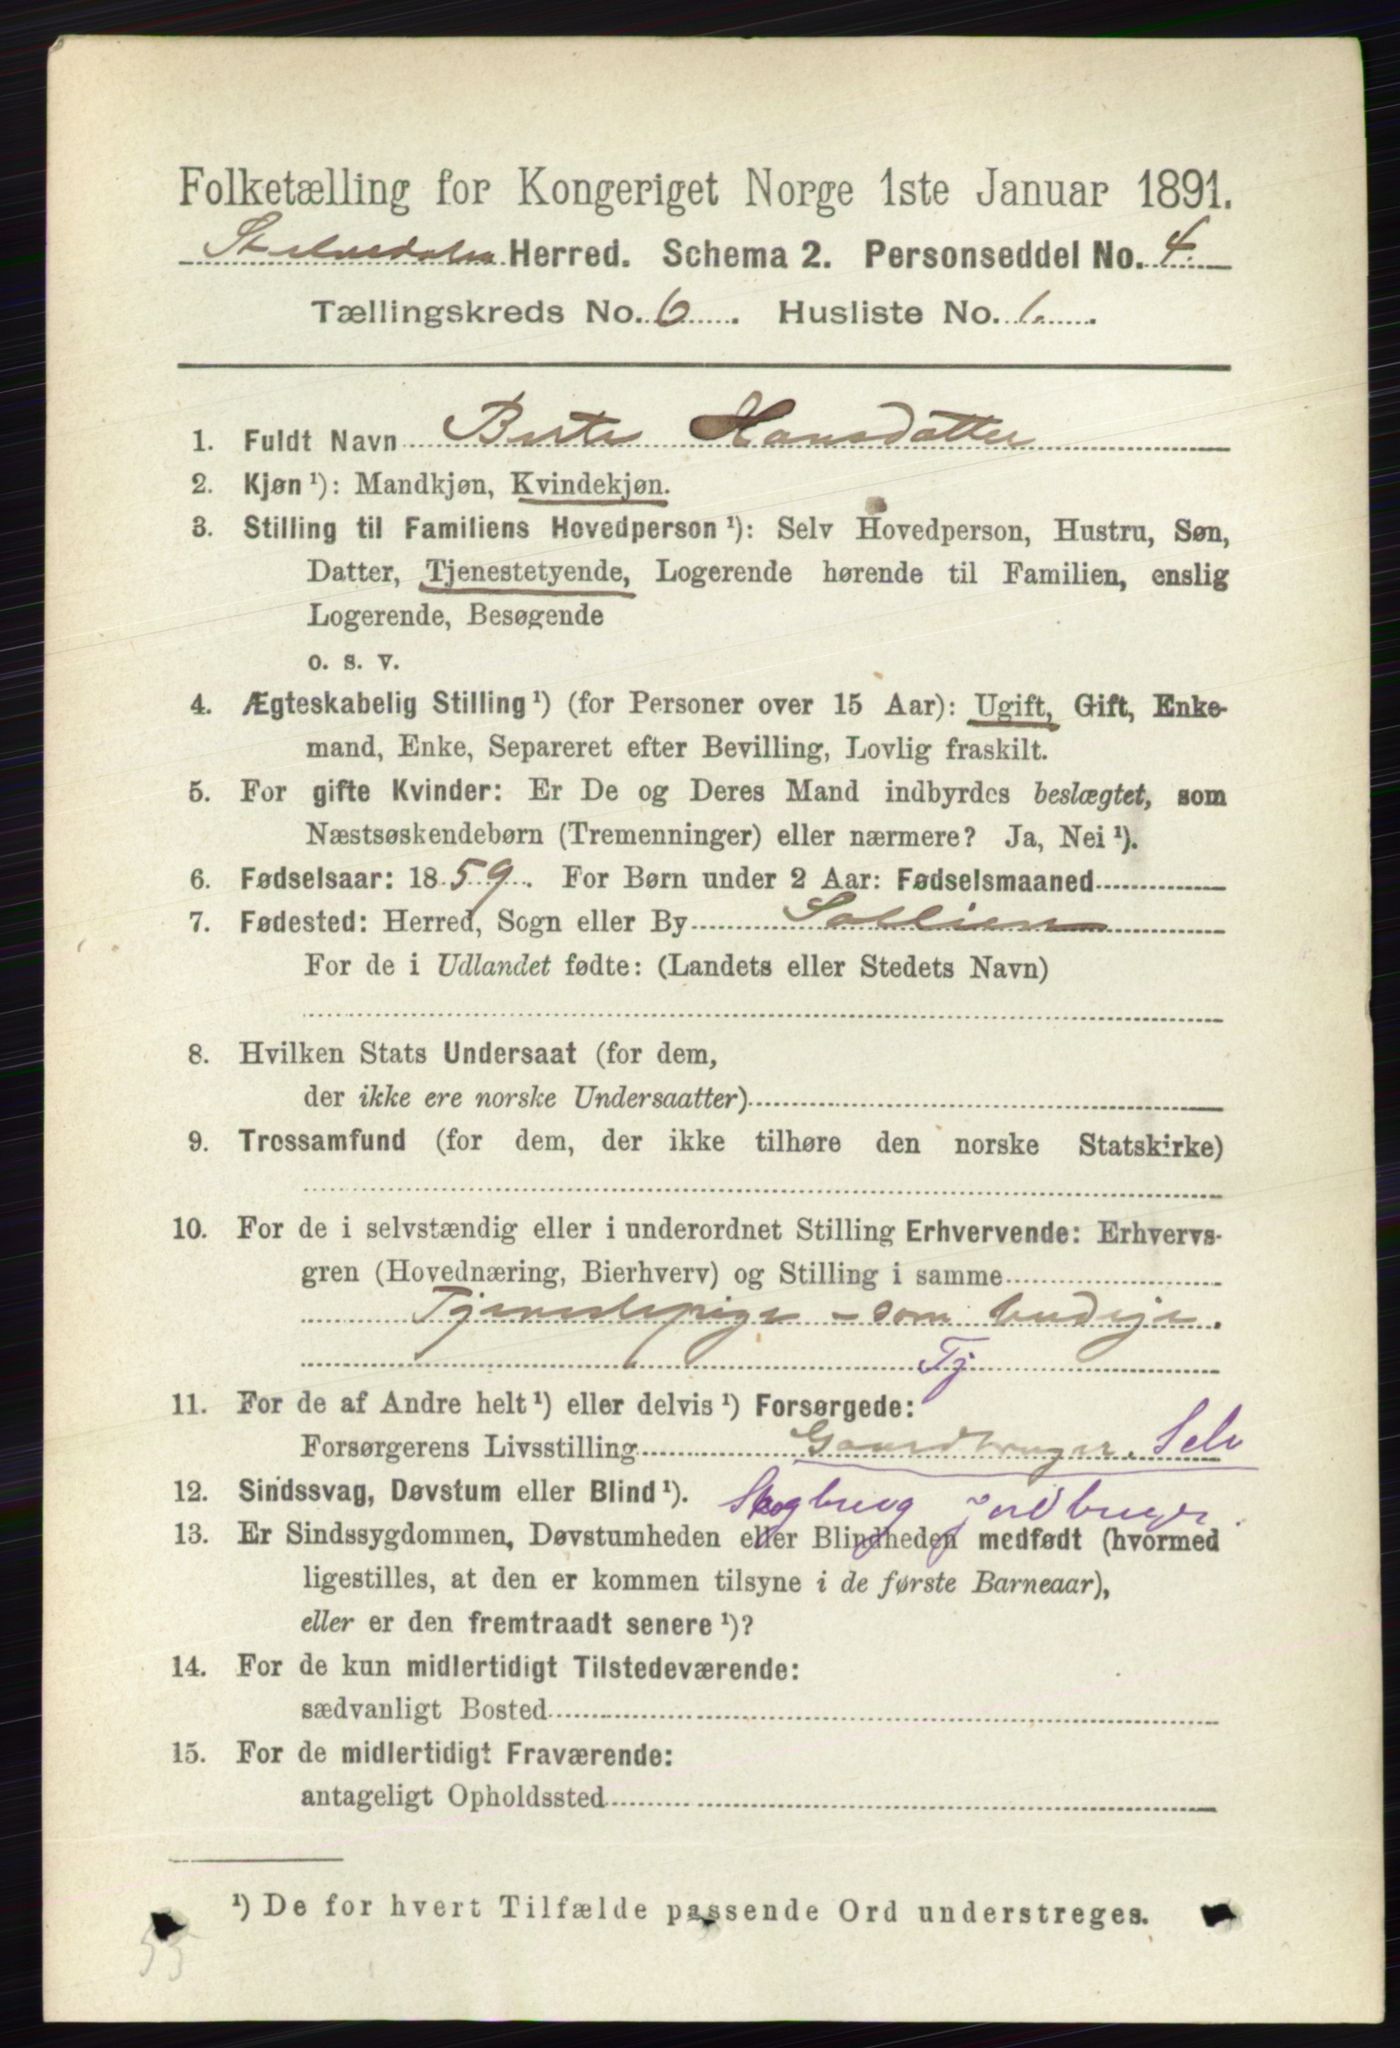 Folketælling for Kongeriget Norge 1ste Januar 1891.
Herred. Schema 2. Personseddel No. 4
Tællingskreds No. 6. Husliste No. 1.
1. Fuldt Navn Berte Hansdatter
2. Kjøn ¹): Mandkjøn, Kvindekjøn.
3. Stilling til Familiens Hovedperson ¹): Selv Hovedperson, Hustru, Søn,
Datter, Tjenestetyende, Logerende hørende til Familien, enslig
Logerende, Besøgende
o. s. v.
4. Ægteskabelig Stilling ¹) (for Personer over 15 Aar): Ugift, Gift, Enke-
mand, Enke, Separeret efter Bevilling, Lovlig fraskilt.
5. For gifte Kvinder: Er De og Deres Mand indbyrdes beslægtet, som
Næstsøskendebørn (Tremenninger) eller nærmere? Ja, Nei ¹).
6. Fødselsaar: 1859. For Børn under 2 Aar: Fødselsmaaned
7. Fødested: Herred, Sogn eller By Sollien
For de i Udlandet fødte: (Landets eller Stedets Navn)
8. Hvilken Stats Undersaat (for dem,
der ikke ere norske Undersaatter)
9. Trossamfund (for dem, der ikke tilhøre den norske Statskirke)
10. For de i selvstændig eller i underordnet Stilling Erhvervende: Erhvervs-
gren (Hovednæring, Bierhverv) og Stilling i samme
Tjenestepige - som budeje.
Tj
11. For de af Andre helt ¹) eller delvis ¹) Forsørgede:
Forsørgerens Livsstilling Gaardbruger. Selv
12. Sindssvag, Døvstum eller Blind ¹). Skogbrug jordbruger.
13. Er Sindssygdommen, Døvstumheden eller Blindheden medfødt (hvormed
ligestilles, at den er kommen tilsyne i de første Barneaar),
eller er den fremtraadt senere ¹)?
14. For de kun midlertidigt Tilstedeværende:
sædvanligt Bosted
15. For de midlertidigt Fraværende:
antageligt Opholdssted
¹) De for hvert Tilfælde passende Ord understreges.
55